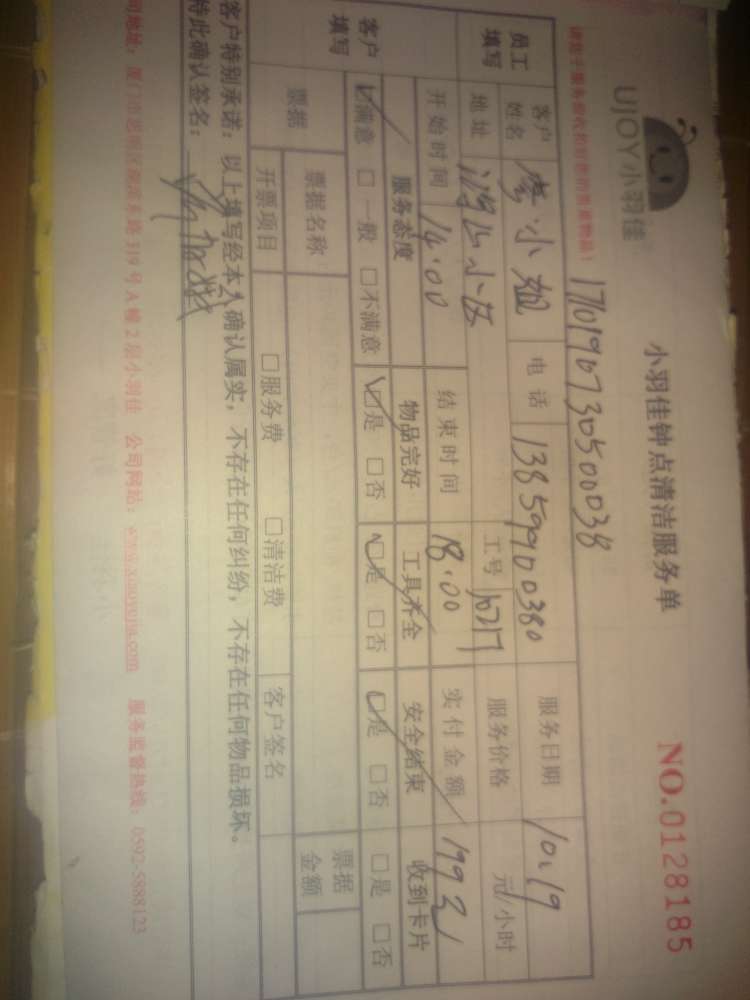 UJOY小羽佳
小羽佳钟点清洁服务单
NO.0128185
1710190730500038
员工填写
客户姓名 小姐 电话 13859900380 服务日期 10.19
地址 小区 工号 服务价格 元/小时
开始时间 14:00 结束时间 18:00 实付金额 199元
客户填写
服务态度 物品完好 工具齐全 安全结束 收到卡片
☑满意 □一般 □不满意 ☑是 □否 ☑是 □否 ☑是 □否 □是 □否
票据 票据名称 票据金额
开票项目 □服务费 □清洁费 客户签名
客户特别承诺：以上填写经本人确认属实，不存在任何纠纷，不存在任何物品损坏。
特此确认签名：
司地址：厦门市思明区 东路319号A幢2层小羽佳 公司网站：www.xiaoyujia.com 服务监督热线：0592-5888123